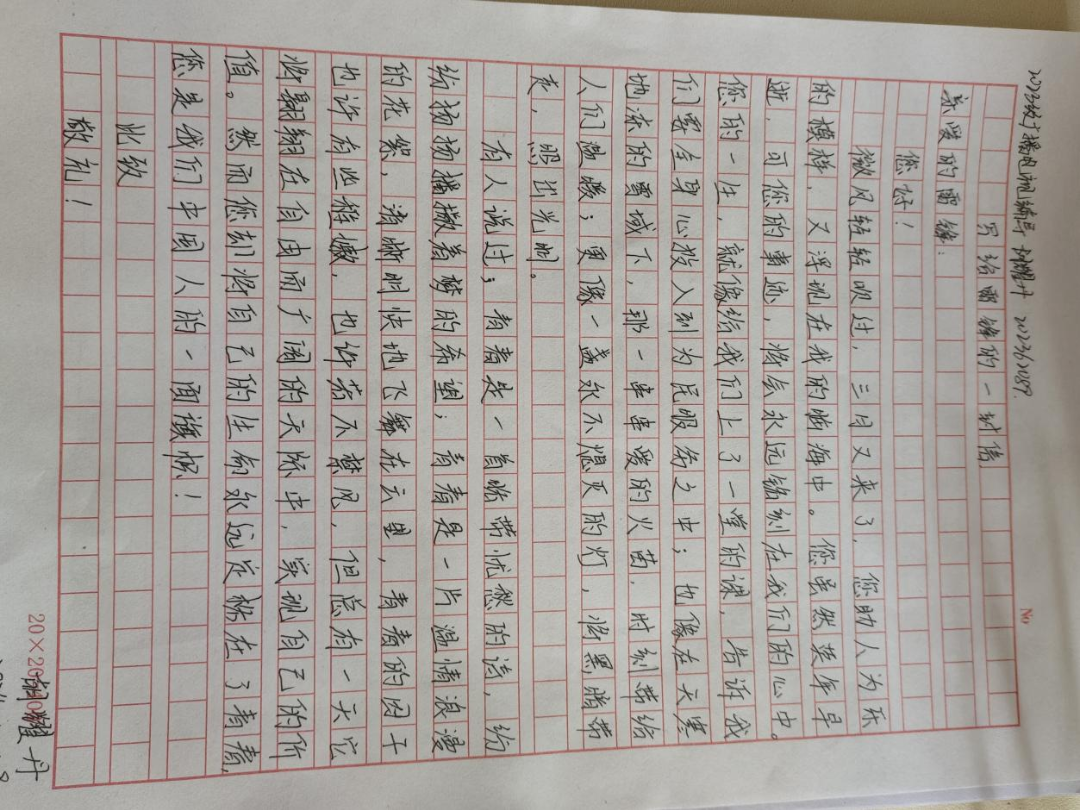 写给雷锋的一封信
亲爱的雷锋：
您好！
微风轻轻吹过，三月又来了，您助人为乐
的模样，又浮现在我的脑海中。您虽然英年早
逝，可您的事迹，将会永远铭刻在我们的心中。
您的一生，就像给我们上了一堂的课，告诉我
们要全身心投入到为民服务之中；也像在天寒
地冻的雪域下，那一串串爱的火苗，时刻带给
人们温暖；更像一盏永不熄灭的灯，将黑暗带
走，照出光明。
有人说过；青春是一首略带忧愁的诗，纷
纷扬扬播撒着梦的希望；青春是一片温情浪漫
的花絮，清晰明快地飞舞在云里，青春的因子
也许有些稚嫩，也许弱不禁风，但总有一天它
将翱翔在自由而广阔的天际中，实现自己的价
值。然而您却将自己的生命永远定格在了青春，
您是我们中国人的一面旗帜！
此致
敬礼！
No
20×20